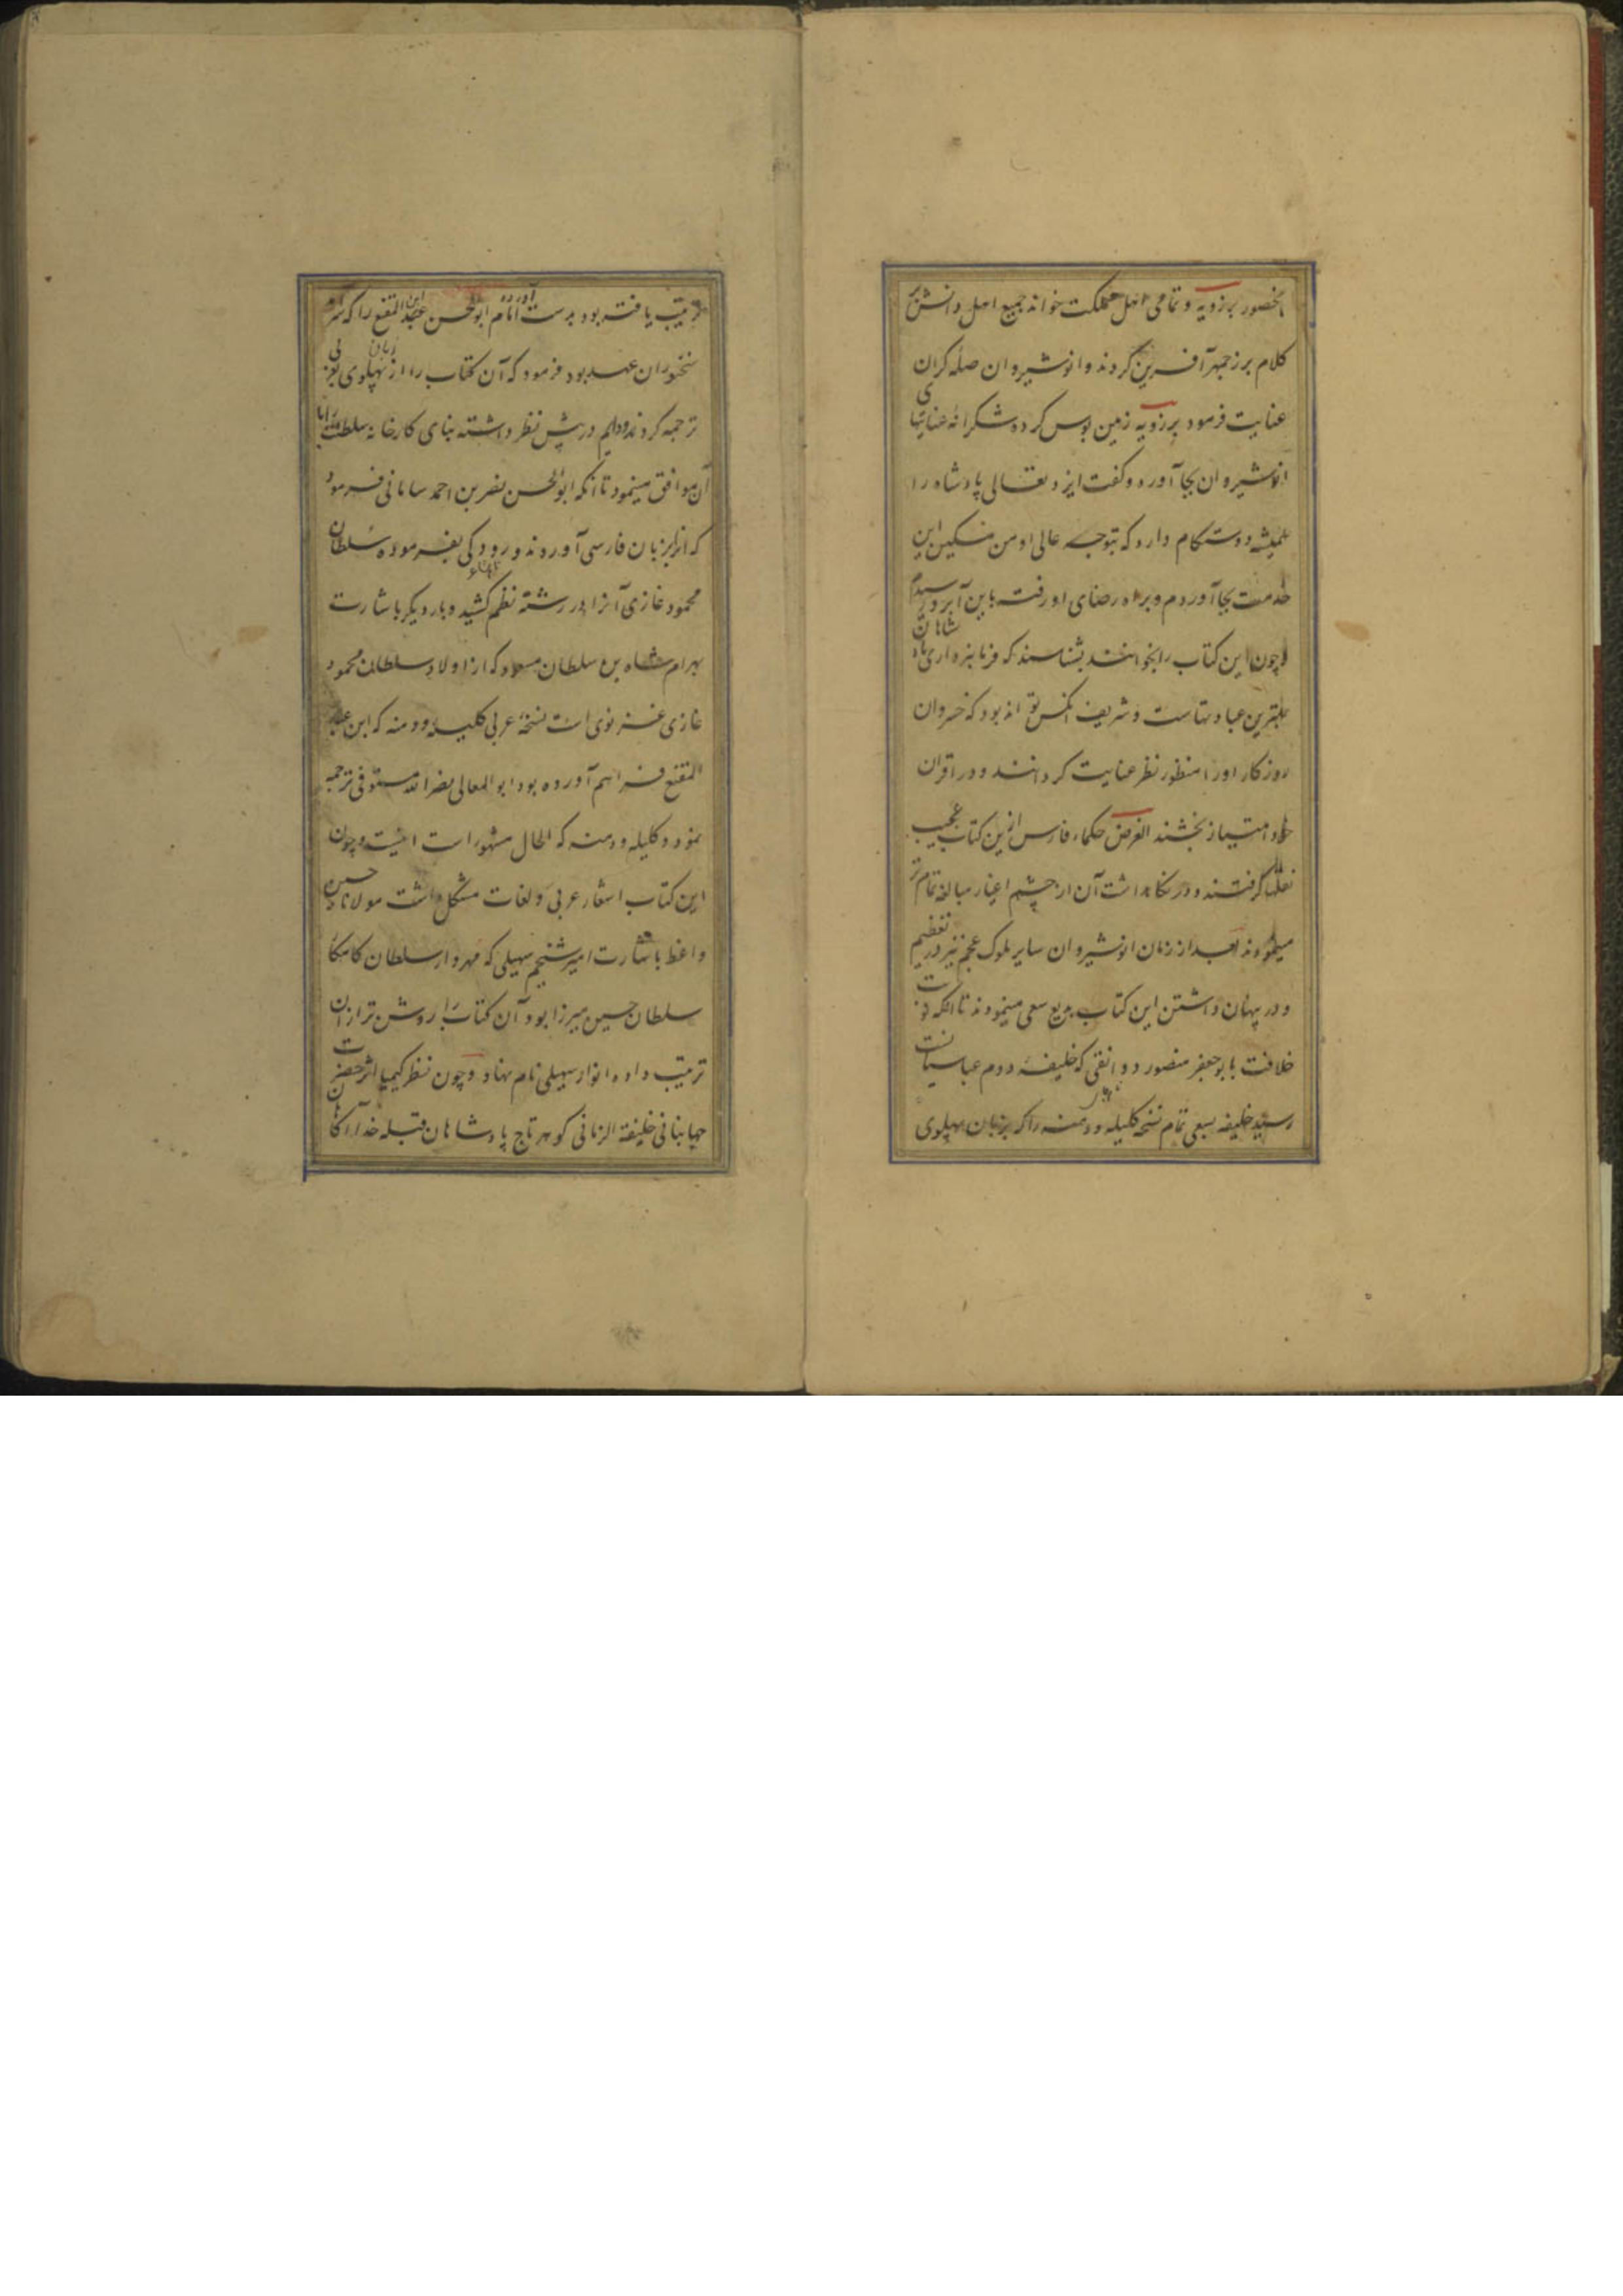 بحضور برزویه و تمامی اهل مملکت خواند جمیع اهل دانش بر
کلام برزجمهر آفرین کردند و انوشیروان صله کران
عنایت فرمود برزویه زمین بوس کرده و شکرانه عنایتهای
انوشیروان بجا آورده و گفت ایزد تعالی پادشاه را
همیشه دوستکام دارد که بتوجه عالی او من مسکین این
خدمت بجا آوردم و براه رضای او رفته باین آبرو رسیدم
و چون این کتاب را بخوانند بشناسند که فرمانبرداری شاهان
بهترین عبادتهاست و شریف آنکس تواند بود که خسروان
روزکار او را منظور نظر عنایت کردانند و در اقران
خود امتیاز بخشند الغرض حکماء فارس ازین کتاب عجیب
نقلها کرفتند و در نکاهداشت آن از چشم اغیار مبالغه تمام
مینمودند بعد از زمان انوشیروان سایر ملوک عجم نیز در تعظیم
و در پنهان داشتن این کتاب بدیع سعی مینمودند تا آنکه نوبت
خلافت بابوجعفر منصور دوانقی که خلیفه دوم عباسیانست
رسید خلیفه بسعی تمام نسخه کلیله و دمنه را که بزبان پهلوی
ترتیب یافته بود بدست آورده امام ابوالحسن عبدالله ابن المقنع را که سر
سخنوران عهد بود فرمود که آن کتاب را از زبان پهلوی بعربی
ترجمه کردند و دایم در پیش نظر داشته بنای کارخانه سلطنت را با
آن موافق مینمود تا آنکه ابوالحسن نصر بن احمد سامانی فرمود
که انرا بزبان فارسی آوردند و رودکی بفرموده سلطان
محمود غازی آنرا در رشته نظم کشید و بار دیکر باشارت
بهرام شاه بن سلطان مسعود که از اولاد سلطان محمود
غازی غزنوی است نسخه عربی کلیله و دمنه که ابن عبد
المقنع فراهم آورده بود ابوالمعالی نصرالله مستوفی ترجمه
نمود و کلیله و دمنه که الحال مشهور است اینست و چون
این کتاب اشعار عربی و لغات مشکل داشت مولانا حسین
واعظ باشارت امیر شیخم سهیلی که مهردار سلطان کامکار
سلطان حسین میرزا بود آن کتاب را روشن تر از آن
ترتیب داده انوار سهیلی نام نهاد و چون نظر کیمیا اثر حضرت
جهانبانی خلیفة الزمانی کوهر تاج پادشاهان قبله خدا آکاهان